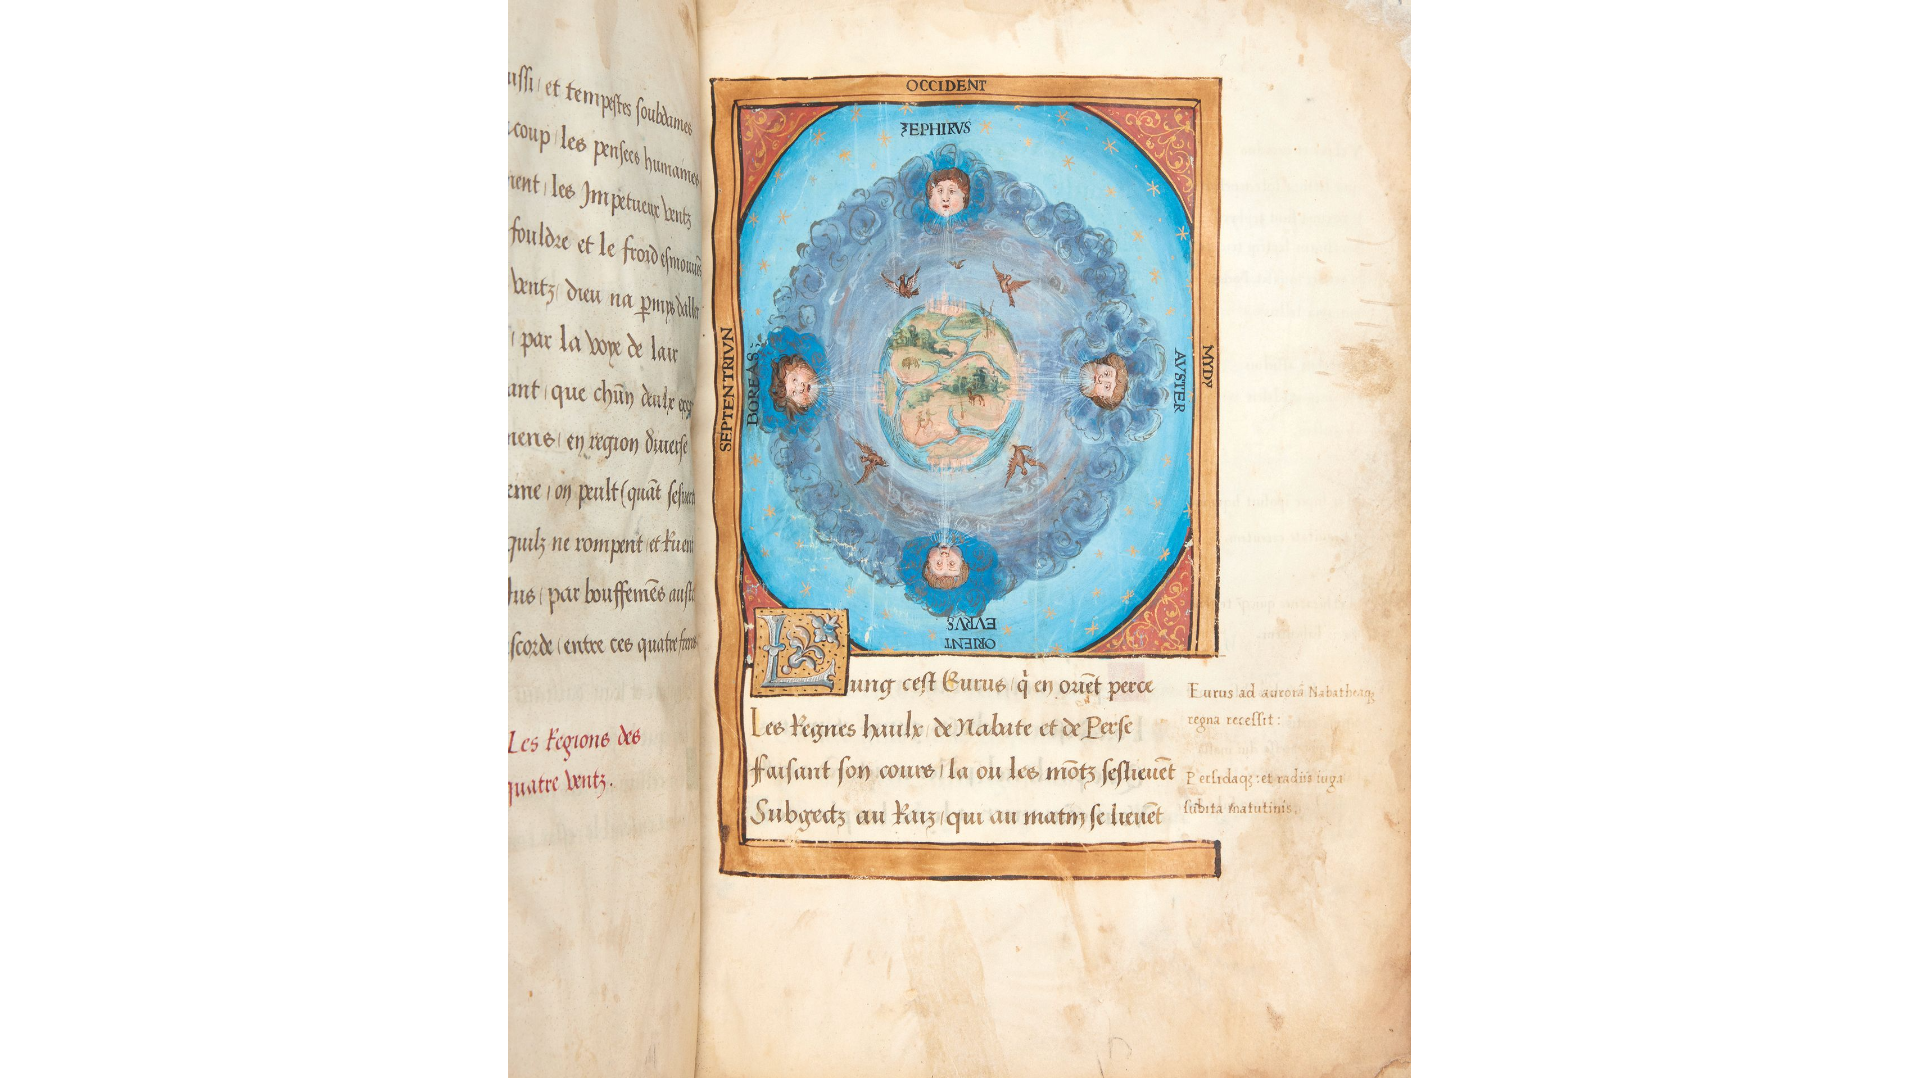 ussi / et tempestes soubdaines
coup / les pensees humaines
ment / les Impetueux ventz
fouldre et le froid esmouuẽs
ventz / dieu na p̱mys daller
par la voye de lair
ant / que chũn deulx
mens / en region diuerse
eme / on peult (quãt
quilz ne rompent et
par bouffemẽs
scorde / entre ces quatre freres
Les Regions des
quatre ventz.
OCCIDENT
ZEPHIRVS
SEPTENTRIVN
BOREAS
AVSTER
MYDY
EVRVS
ORIENT
Lung cest Eurus / q̃ en oriẽt perce
Les Regnes haulx / de Nabate et de Perse
Faisant son cours / la ou les mõtz seslieuẽt
Subgectz au Raiz / qui au matin se lieuẽt
Eurus ad aurorã Nabatheaqꝫ
regna recessit :
Persidaqꝫ : et radiis iuga
subita matutinis.